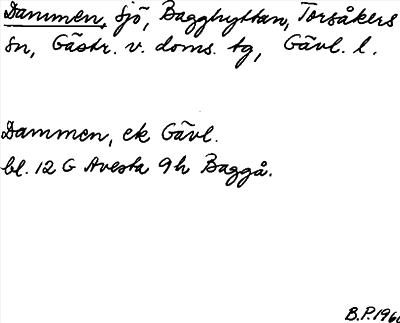 Dammen, sjö, Bagghyttan, Torsåkers
sn, Gästr. v. doms. tg, Gävl. l.
Dammen, ek Gävl.
bl. 12 G Avesta 9h Baggå.
B.P.196